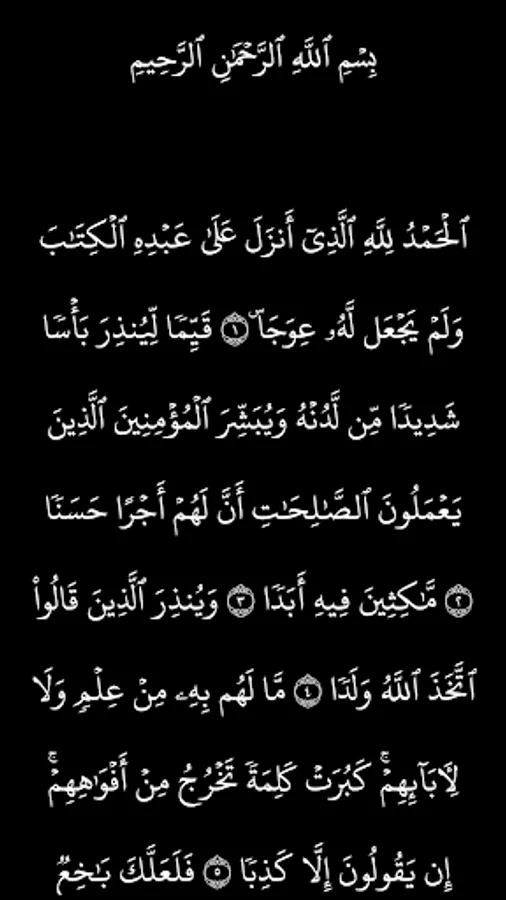 بِسْمِ ٱللَّهِ ٱلرَّحْمَٰنِ ٱلرَّحِيمِ
ٱلْحَمْدُ لِلَّهِ ٱلَّذِىٓ أَنزَلَ عَلَىٰ عَبْدِهِ ٱلْكِتَٰبَ
وَلَمْ يَجْعَل لَّهُۥ عِوَجَاۜ ١ قَيِّمًا لِّيُنذِرَ بَأْسًا
شَدِيدًا مِّن لَّدُنْهُ وَيُبَشِّرَ ٱلْمُؤْمِنِينَ ٱلَّذِينَ
يَعْمَلُونَ ٱلصَّٰلِحَٰتِ أَنَّ لَهُمْ أَجْرًا حَسَنًا
٢ مَّٰكِثِينَ فِيهِ أَبَدًا ٣ وَيُنذِرَ ٱلَّذِينَ قَالُوا۟
ٱتَّخَذَ ٱللَّهُ وَلَدًا ٤ مَّا لَهُم بِهِۦ مِنْ عِلْمٍ وَلَا
لِـَٔابَآئِهِمْ ۚ كَبُرَتْ كَلِمَةً تَخْرُجُ مِنْ أَفْوَٰهِهِمْ ۚ
إِن يَقُولُونَ إِلَّا كَذِبًا ٥ فَلَعَلَّكَ بَٰخِعٌ